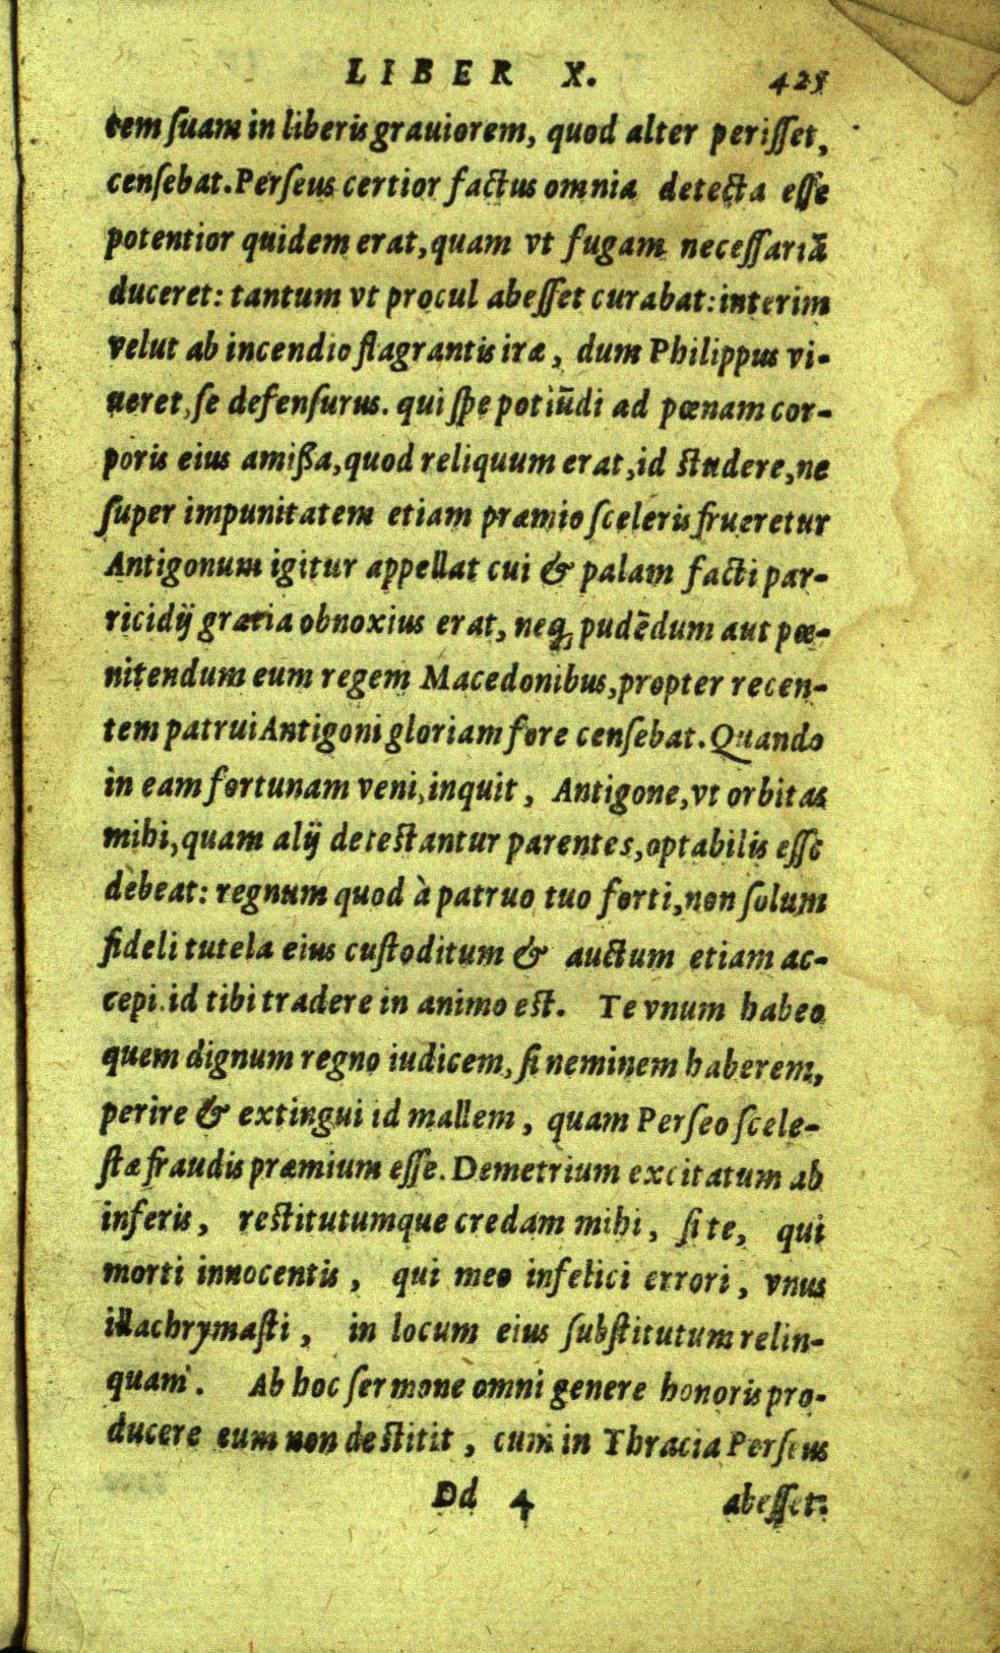 LIBER X. 425
tem ſuam in liberis grauiorem, quod alter periſſet,
cenſebat. Perſeus certior factus omnia detecta eſſe
potentior quidem erat, quam vt fugam neceſſariã
duceret: tantum vt procul abeſſet curabat: interim
velut ab incendio flagrantis iræ, dum Philippus vi-
ueret, ſe defenſurus. qui ſpe potiũdi ad pœnam cor-
poris eius amißa, quod reliquum erat, id studere, ne
ſuper impunitatem etiam præmio ſceleris frueretur
Antigonum igitur appellat cui & palam facti par-
ricidij gratia obnoxius erat, neq; pudẽdum aut pœ-
nitendum eum regem Macedonibus, propter recen-
tem patrui Antigoni gloriam fore cenſebat. Quando
in eam fortunam veni, inquit, Antigone, vt orbitas
mihi, quam alij detestantur parentes, optabilis eſſe
debeat: regnum quod à patruo tuo forti, non ſolum
fideli tutela eius cuſtoditum & auctum etiam ac-
cepi. id tibi tradere in animo est. Te vnum habeo
quem dignum regno iudicem, ſi neminem haberem,
perire & extingui id mallem, quam Perſeo ſcele-
ſtæ fraudis præmium eſſe. Demetrium excitatum ab
inferis, restitutumque credam mihi, ſi te, qui
morti innocentis, qui meo infelici errori, vnus
illachrymaſti, in locum eius ſubſtitutum relin-
quam. Ab hoc ſermone omni genere honoris pro-
ducere eum non destitit, cum in Thracia Perſeus
Dd 4 abeſſet: